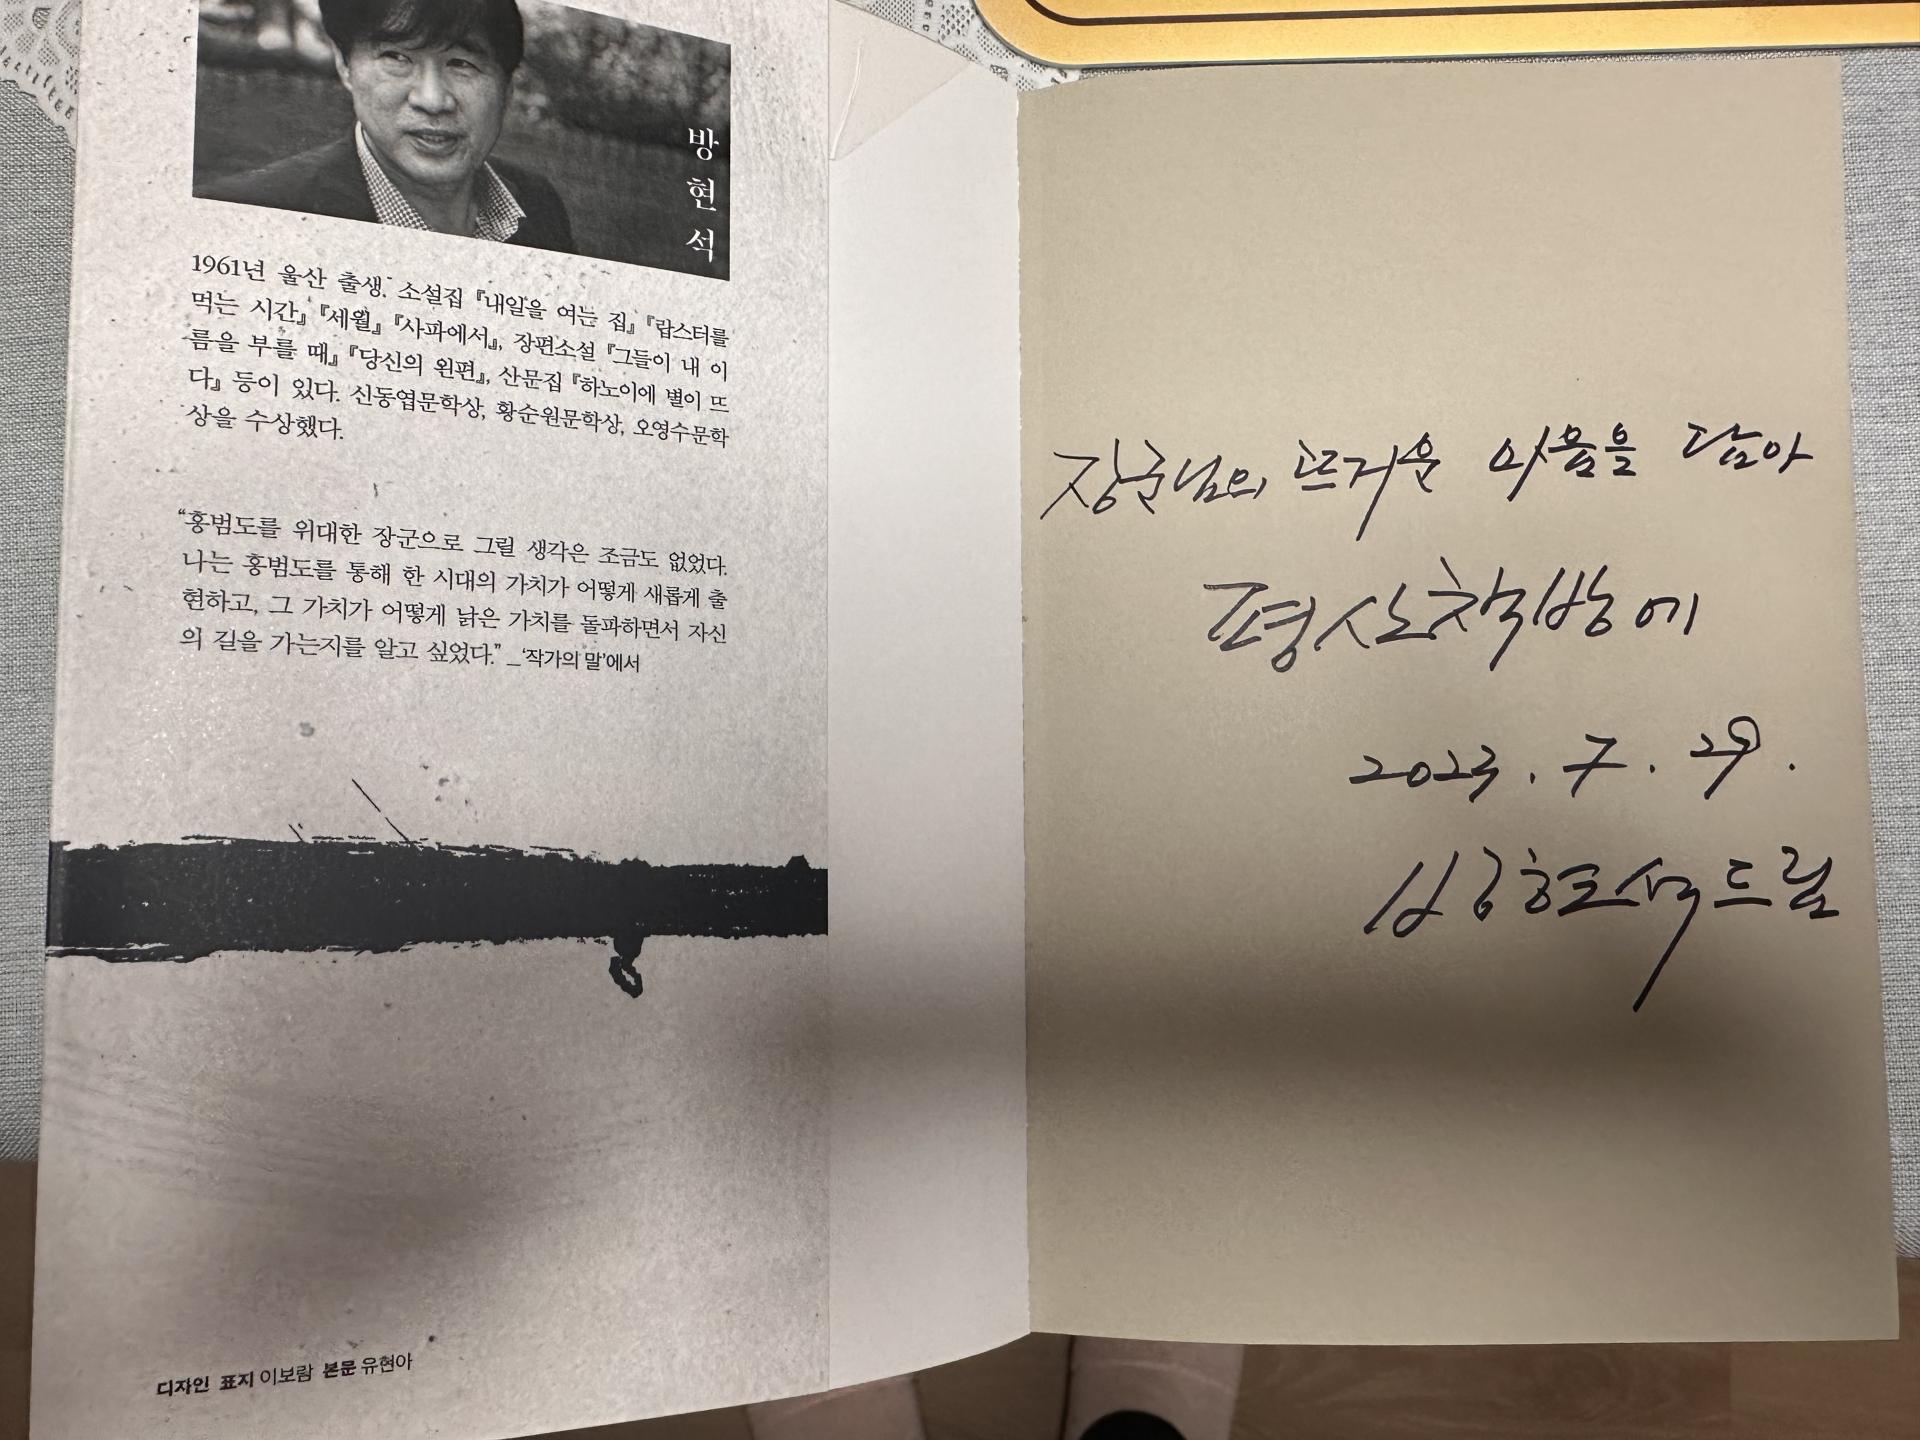 방
현
석
1961년 울산 출생. 소설집 『내일을 여는 집』 『랍스터를
먹는 시간』 『세월』 『사파에서』, 장편소설 『그들이 내 이
름을 부를 때』 『당신의 왼편』, 산문집 『하노이에 별이 뜨
다』 등이 있다. 신동엽문학상, 황순원문학상, 오영수문학
상을 수상했다.
“홍범도를 위대한 장군으로 그릴 생각은 조금도 없었다.
나는 홍범도를 통해 한 시대의 가치가 어떻게 새롭게 출
현하고, 그 가치가 어떻게 낡은 가치를 돌파하면서 자신
의 길을 가는지를 알고 싶었다.” _‘작가의 말’에서
디자인 표지 이보람 본문 유현아
장군님의 뜨거운 마음을 담아
평산책방에
2023. 7. 29.
방현석 드림